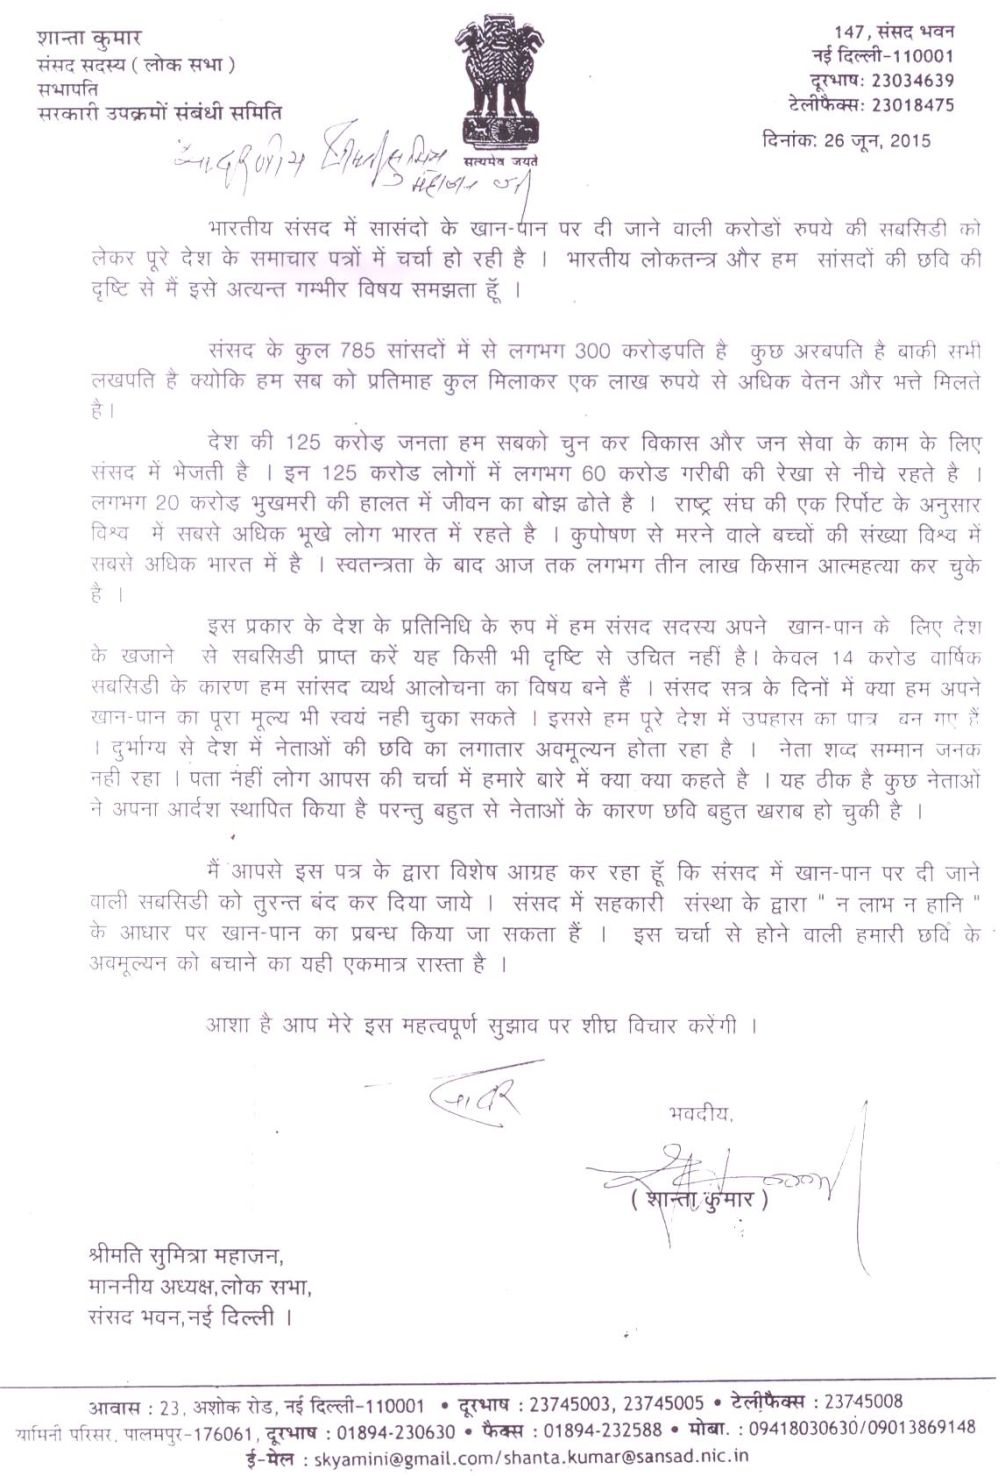 शान्ता कुमार
संसद सदस्य ( लोक सभा )
सभापति
सरकारी उपक्रमों संबंधी समिति
सत्यमेव जयते
147, संसद भवन
नई दिल्ली-110001
दूरभाष: 23034639
टेलीफैक्स: 23018475
दिनांक: 26 जून, 2015
आदरणीय श्रीमती सुमित्रा
महाजन जी
भारतीय संसद में सासंदो के खान-पान पर दी जाने वाली करोडों रुपये की सबसिडी को
लेकर पूरे देश के समाचार पत्रों में चर्चा हो रही है । भारतीय लोकतन्त्र और हम सांसदों की छवि की
दृष्टि से मैं इसे अत्यन्त गम्भीर विषय समझता हूॅ ।
संसद के कुल 785 सांसदों में से लगभग 300 करोड़पति है कुछ अरबपति है बाकी सभी
लखपति है क्योकि हम सब को प्रतिमाह कुल मिलाकर एक लाख रुपये से अधिक वेतन और भत्ते मिलते
है।
देश की 125 करोड़ जनता हम सबको चुन कर विकास और जन सेवा के काम के लिए
संसद में भेजती है । इन 125 करोड लोगों में लगभग 60 करोड गरीबी की रेखा से नीचे रहते है ।
लगभग 20 करोड़ भुखमरी की हालत में जीवन का बोझ ढोते है । राष्ट्र संघ की एक रिर्पोट के अनुसार
विश्व में सबसे अधिक भूखे लोग भारत में रहते है । कुपोषण से मरने वाले बच्चों की संख्या विश्व में
सबसे अधिक भारत में है । स्वतन्त्रता के बाद आज तक लगभग तीन लाख किसान आत्महत्या कर चुके
है ।
इस प्रकार के देश के प्रतिनिधि के रुप में हम संसद सदस्य अपने खान-पान के लिए देश
के खजाने से सबसिडी प्राप्त करें यह किसी भी दृष्टि से उचित नहीं है। केवल 14 करोड वार्षिक
सबसिडी के कारण हम सांसद व्यर्थ आलोचना का विषय बने हैं । संसद सत्र के दिनों में क्या हम अपने
खान-पान का पूरा मूल्य भी स्वयं नही चुका सकते । इससे हम पूरे देश में उपहास का पात्र बन गए हैं
। दुर्भाग्य से देश में नेताओं की छवि का लगातार अवमूल्यन होता रहा है । नेता शव्द सम्मान जनक
नही रहा । पता नंहीं लोग आपस की चर्चा में हमारे बारे में क्या क्या कहते है । यह ठीक है कुछ नेताओं
ने अपना आर्दश स्थापित किया है परन्तु बहुत से नेताओं के कारण छवि बहुत खराब हो चुकी है ।
मैं आपसे इस पत्र के द्वारा विशेष आग्रह कर रहा हूॅ कि संसद में खान-पान पर दी जाने
वाली सबसिडी को तुरन्त बंद कर दिया जाये । संसद में सहकारी संस्था के द्वारा " न लाभ न हानि "
के आधार पर खान-पान का प्रबन्ध किया जा सकता हैं । इस चर्चा से होने वाली हमारी छवि के
अवमूल्यन को बचाने का यही एकमात्र रास्ता है ।
आशा है आप मेरे इस महत्वपूर्ण सुझाव पर शीघ्र विचार करेंगी ।
सादर
भवदीय,
( शान्ता कुमार )
श्रीमति सुमित्रा महाजन,
माननीय अध्यक्ष,लोक सभा,
संसद भवन,नई दिल्ली ।
आवास : 23, अशोक रोड, नई दिल्ली-110001 • दूरभाष : 23745003, 23745005 • टेलीफैक्स : 23745008
यामिनी परिसर, पालमपुर-176061, दूरभाष : 01894-230630 • फैक्स : 01894-232588 • मोबा. : 09418030630/09013869148
ई-मेल : skyamini@gmail.com/shanta.kumar@sansad.nic.in